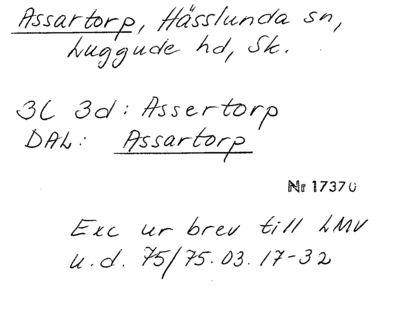 Assartorp, Hässlunda sn,
Luggude hd, Sk.
3C 3d: Assertorp
DAL: Assartorp
Nr 17370
Exc ur brev till LMV
u.d. 75/75.03.17-32